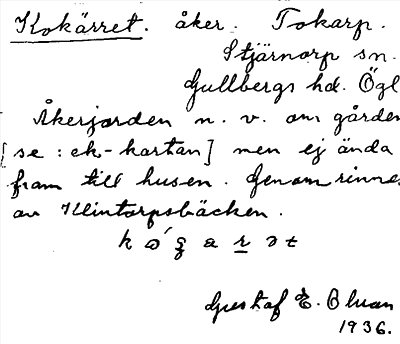 Kokärret. åker. Tokarp.
Stjärnorp sn.
Gullbergs hd. Ögl
Åkerjorden n. v. om gården
[se: ek-kartan] men ej ända
fram till husen. Genomrinnes
av Klintorpsbäcken.
Gustaf E. Olson
1936.